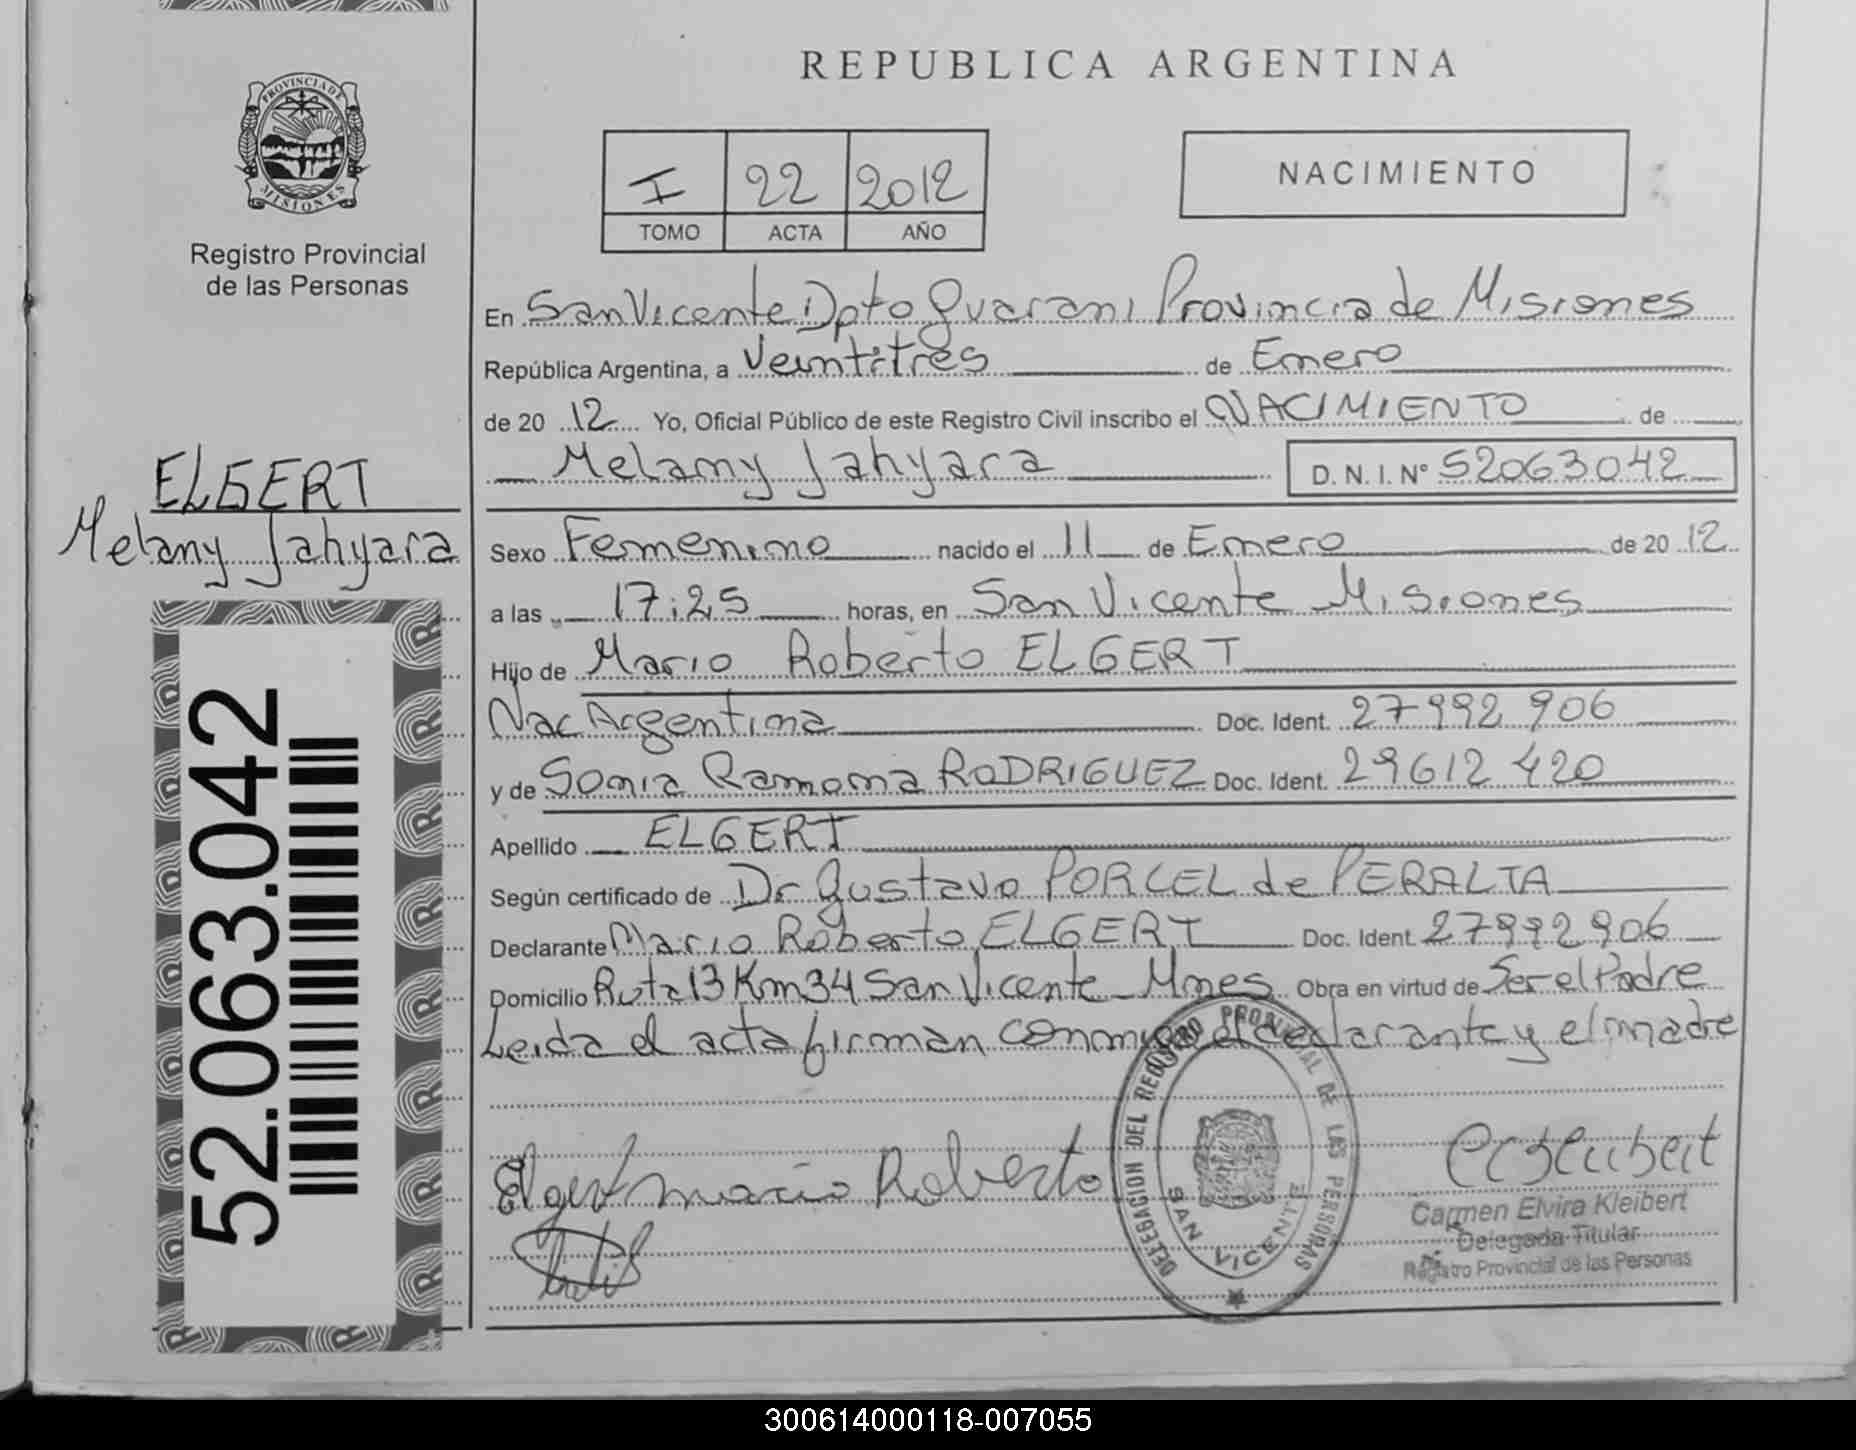 REPUBLICA ARGENTINA
PROVINCIA DE
MISIONES
Registro Provincial
de las Personas
I 22 2012
TOMO ACTA AÑO
NACIMIENTO
En San Vicente Dpto Guarani Provincia de Misiones
República Argentina, a Veintitres de Enero
de 2012 Yo, Oficial Público de este Registro Civil inscribo el NACIMIENTO de
Melany Jahyara D. N. I. Nº 52063042
ELGERT
Melany Jahyara
Sexo Femenino nacido el 11 de Enero de 2012
a las 17:25 horas, en San Vicente Misiones
Hijo de Mario Roberto ELGERT
Nac Argentina Doc. Ident. 27992906
y de Sonia Ramona RODRIGUEZ Doc. Ident. 29612420
Apellido ELGERT
Según certificado de Dr Gustavo PORCEL de PERALTA
Declarante Mario Roberto ELGERT Doc. Ident. 27992906
Domicilio Ruta 13 Km 34 San Vicente Mnes Obra en virtud de Ser el Padre
Leida el acta firman conmigo el declarante y el madre
52.063.042
Elgert mario Roberto
DELEGACION DEL REGISTRO PROVINCIAL DE LAS PERSONAS
SAN VICENTE
Carmen Elvira Kleibert
Delegada Titular
Registro Provincial de las Personas
300614000118-007055